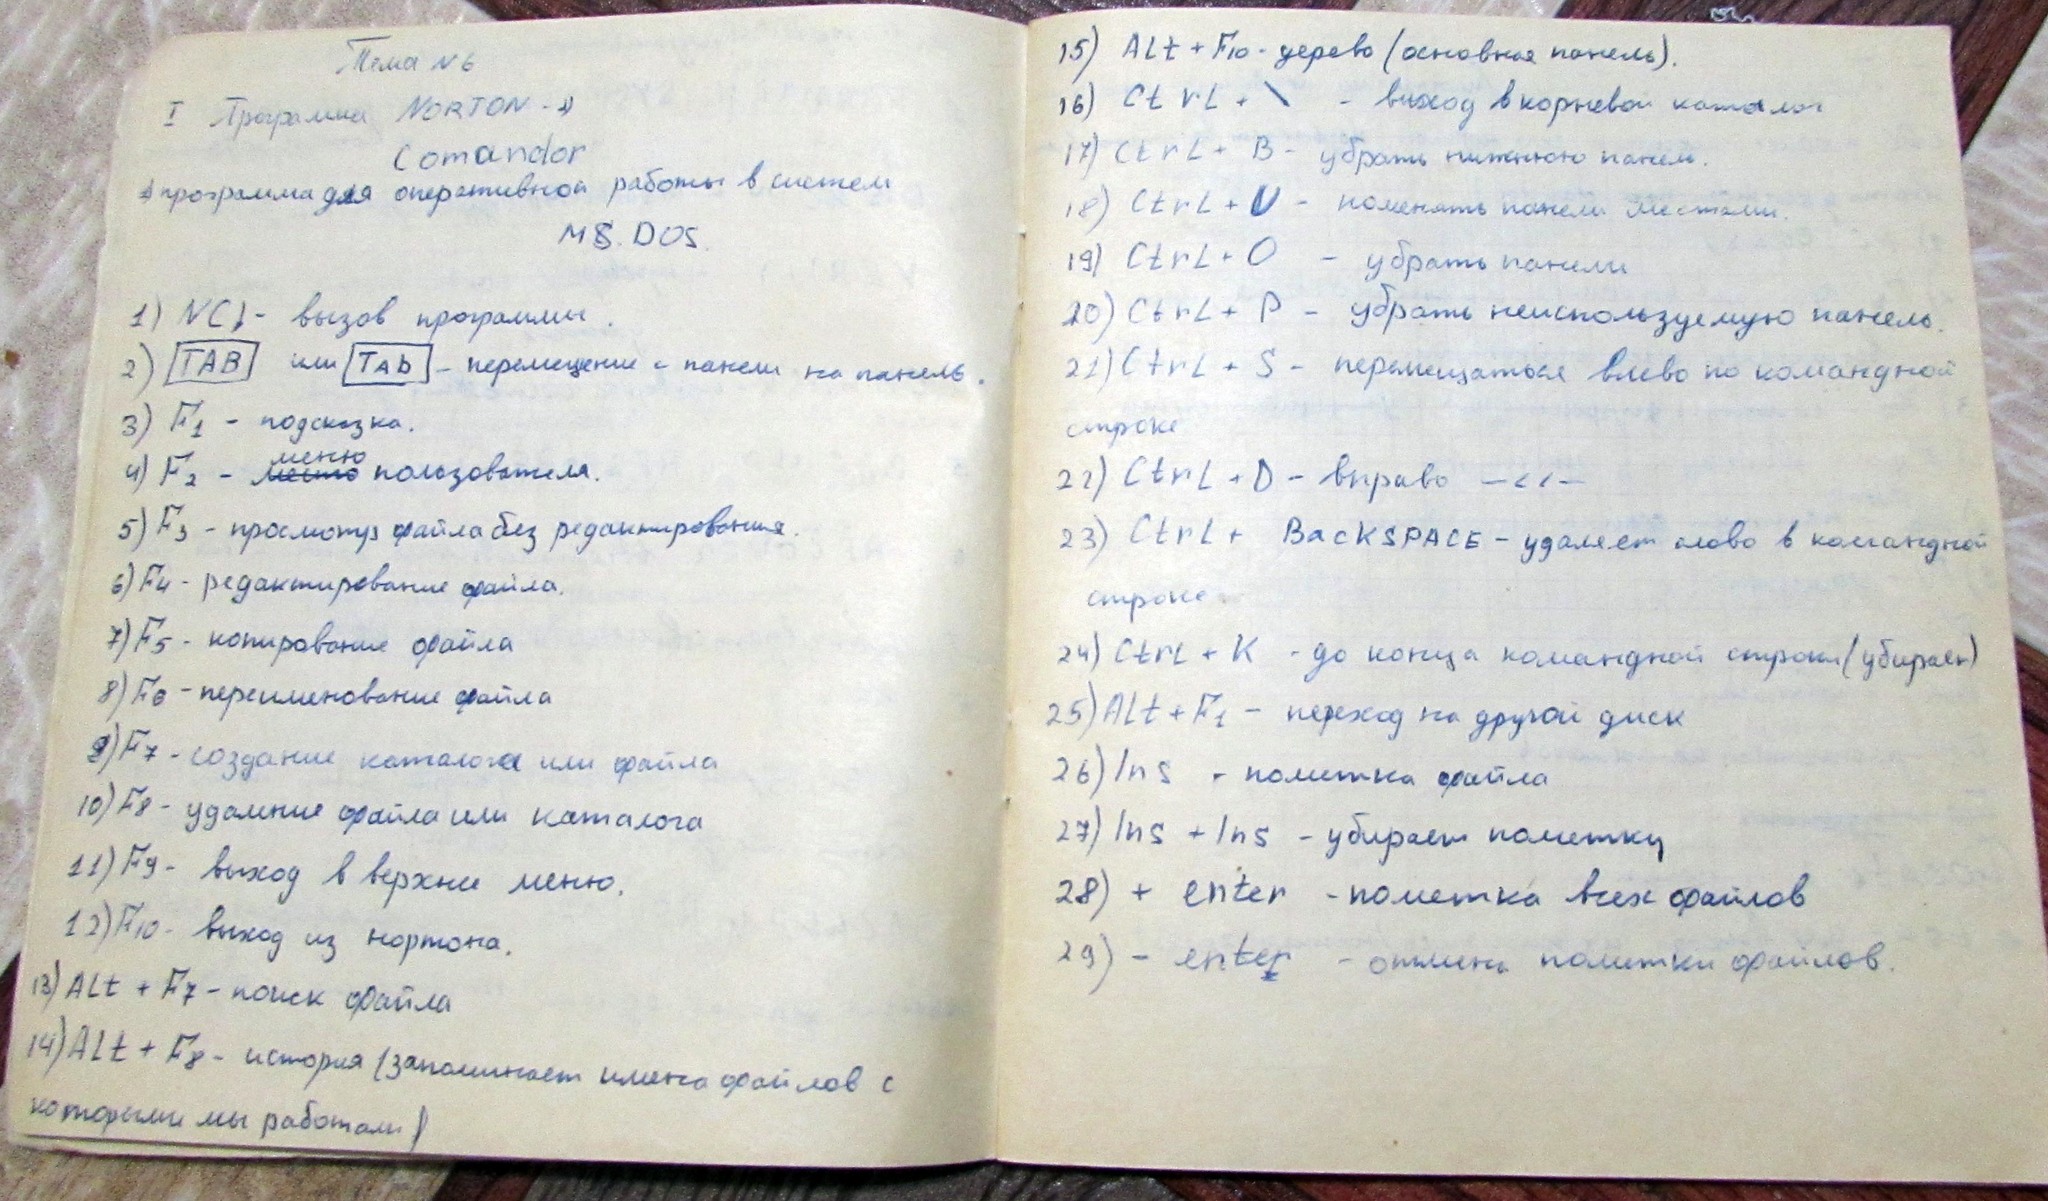 Тема N 6
I Программа NORTON -
Comandor
программа для оперативной работы в систем
MS. DOS.
1) NC↓ - вызов программы.
2) TAB или TAb - перемещение с панели на панель.
3) F1 - подсказка.
меню
4) F2 - место пользователя.
5) F3 - просмотр файла без редактирования.
6) F4 - редактирование файла.
7) F5 - копирование файла
8) F6 - переименование файла
9) F7 - создание каталога или файла
10) F8 - удаление файла или каталога
11) F9 - выход в верхние меню.
12) F10 - выход из нортона.
13) ALt + F7 - поиск файла
14) ALt + F8 - история (запоминает имена файлов с
которыми мы работали)
15) ALt + F10 - дерево (основная панель).
16) CtrL + \ - выход в корневой каталог
17) CtrL + B - убрать нижнюю панел.
18) CtrL + U - поменять панели местами.
19) CtrL + O - убрать панели
20) CtrL + P - убрать неиспользуемую панель.
21) CtrL + S - перемещаться влево по командной
строке
22) CtrL + D - вправо —‹‹—
23) CtrL + BacKSPACE - удаляет слово в командной
строке
24) CtrL + K - до конца командной строки (убирает)
25) ALt + F1 - переход на другой диск
26) Ins - пометка файла
27) Ins + Ins - убирает пометку
28) + enter - пометка всех файлов
29) - enter - отмена пометки файлов.